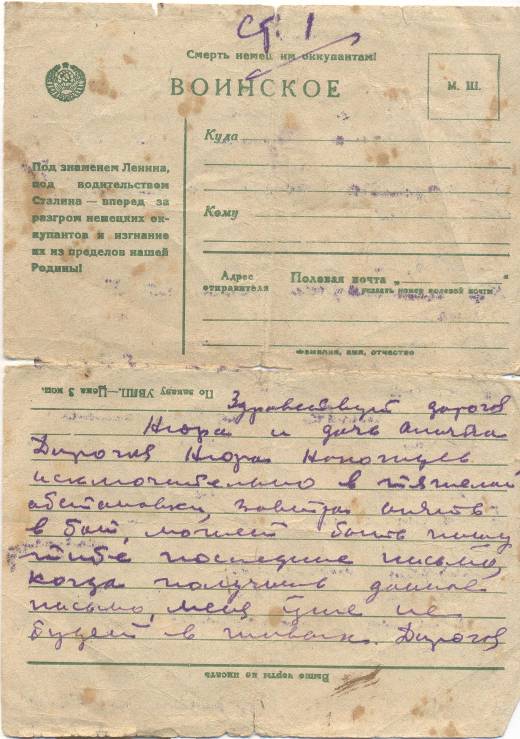 Ст. 1
Смерть немецким оккупантам!
ВОИНСКОЕ
М. Ш.
Куда
Под знаменем Ленина,
под водительством
Сталина — вперед за
разгром немецких ок-
купантов и изгнание
их из пределов нашей
Родины!
Кому
Адрес
отправителя
Полевая почта „
указать номер полевой почты
фамилия, имя, отчество
По заказу УВПП. Цена 3 коп.
Здравствуй дорогая
Нюра и дочь
Дорогая Нюра Нахожусь
исключительно в тяжелой
обстановки, завтра опять
в бой, может быть пишу
тибе последние письмо,
когда получишь данное
письмо, меня уже не
будет в живых. Дорогая
Выше черты не писать